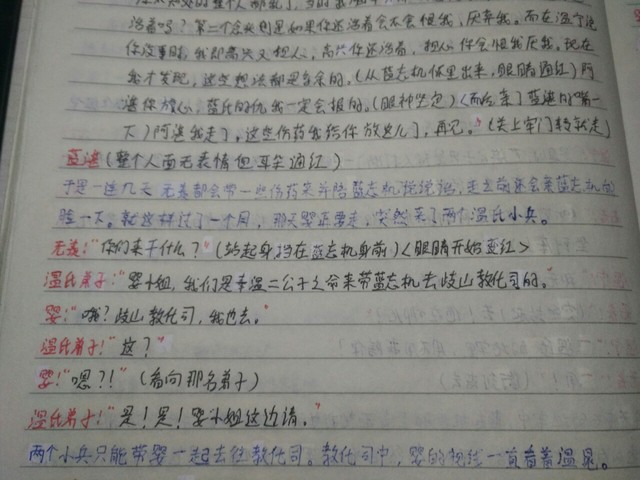 活着吗？第二个念头则是如果你还活着会不会恨我，厌弃我。而在温宁说
你没事时，我即高兴又担心，高兴你还活着，担心你会恨我厌我。现在
我才发现，这些想法都是多余的。（从蓝忘机怀里出来，眼睛通红）阿
湛你放心，蓝氏的仇我一定会报的。（眼神坚定）（而后亲了蓝湛的嘴一
下）阿湛我走了，这些伤药我给你放这儿了，再见。”（关上牢门转身就走）
蓝湛（整个人面无表情但耳尖通红）
于是一连几天无羡都会带一些伤药来并陪蓝忘机说说话，走之前还会亲蓝忘机的
脸一下。就这样过了一个月，那天婴正要走，突然来了两个温氏小兵。
无羡：“你们来干什么？”（转起身挡在蓝忘机身前）<眼睛开始变红>
温氏弟子：“婴小姐，我们是奉温二公子之命来带蓝忘机去岐山教化司的。”
婴：“哦？岐山教化司，我也去。”
温氏弟子：“这？”
婴：“嗯？！”（看向那名弟子）
温氏弟子：“是！是！婴小姐这边请。”
两个小兵只能带婴一起去往教化司。教化司中，婴的视线一直看着温晁。